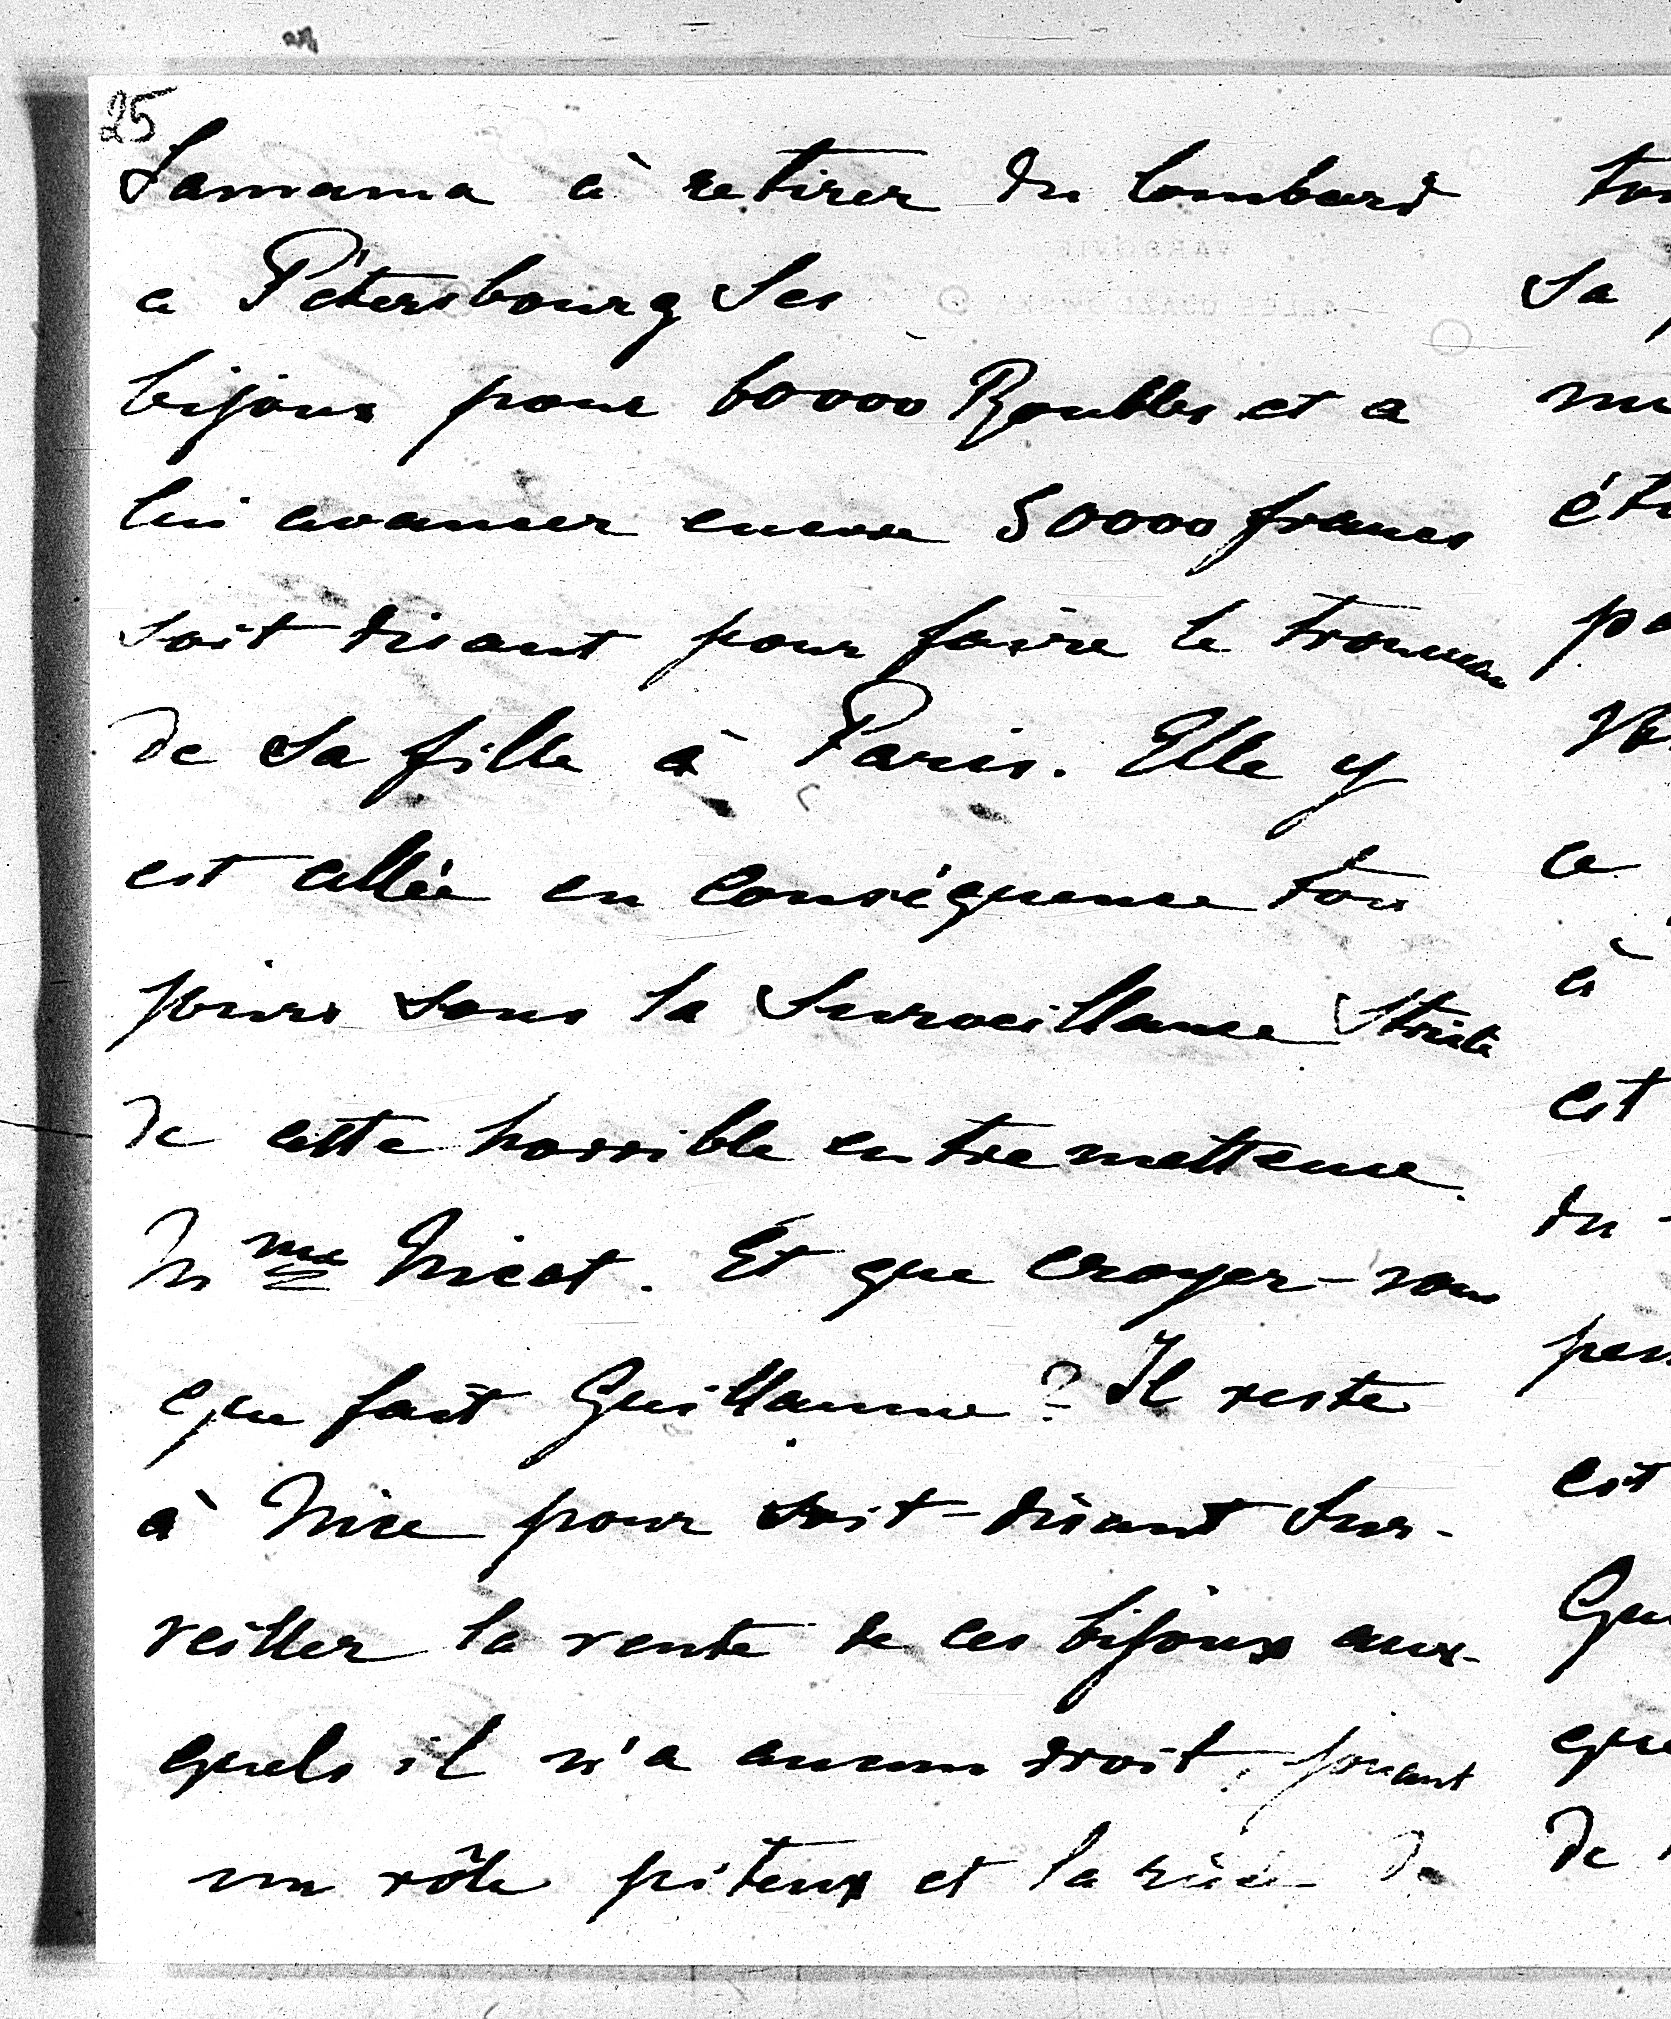 25
Samama à retirer du lombard
a Pétersbourg Ses
bijoux pour 60000 Roubles et a
lui avancer encore 50000 francs
soit disant pour faire le trousseau
de sa fille à Paris. Elle y
est allée en conséquence tou
jours sous la Surveillance Stricte
de cette horrible entremetteuse.
Mme Nicot. Et que croyez-vous
que fait Guillaume? Il reste
à Nice pour soit-disant Sur-
veiller la vente de ces bijoux aux-
quels il n'a aucun droit, jouant
un rôle piteux et la risée de
Sa
ce
à
est
du
est
de